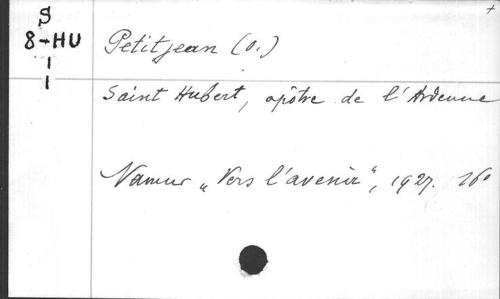 S
8-HU
1
1
+
Petitjean (O.)
Saint Hubert, apôtre de l'Ardenne
Namur „Vers l'avenir", 1927. 16°